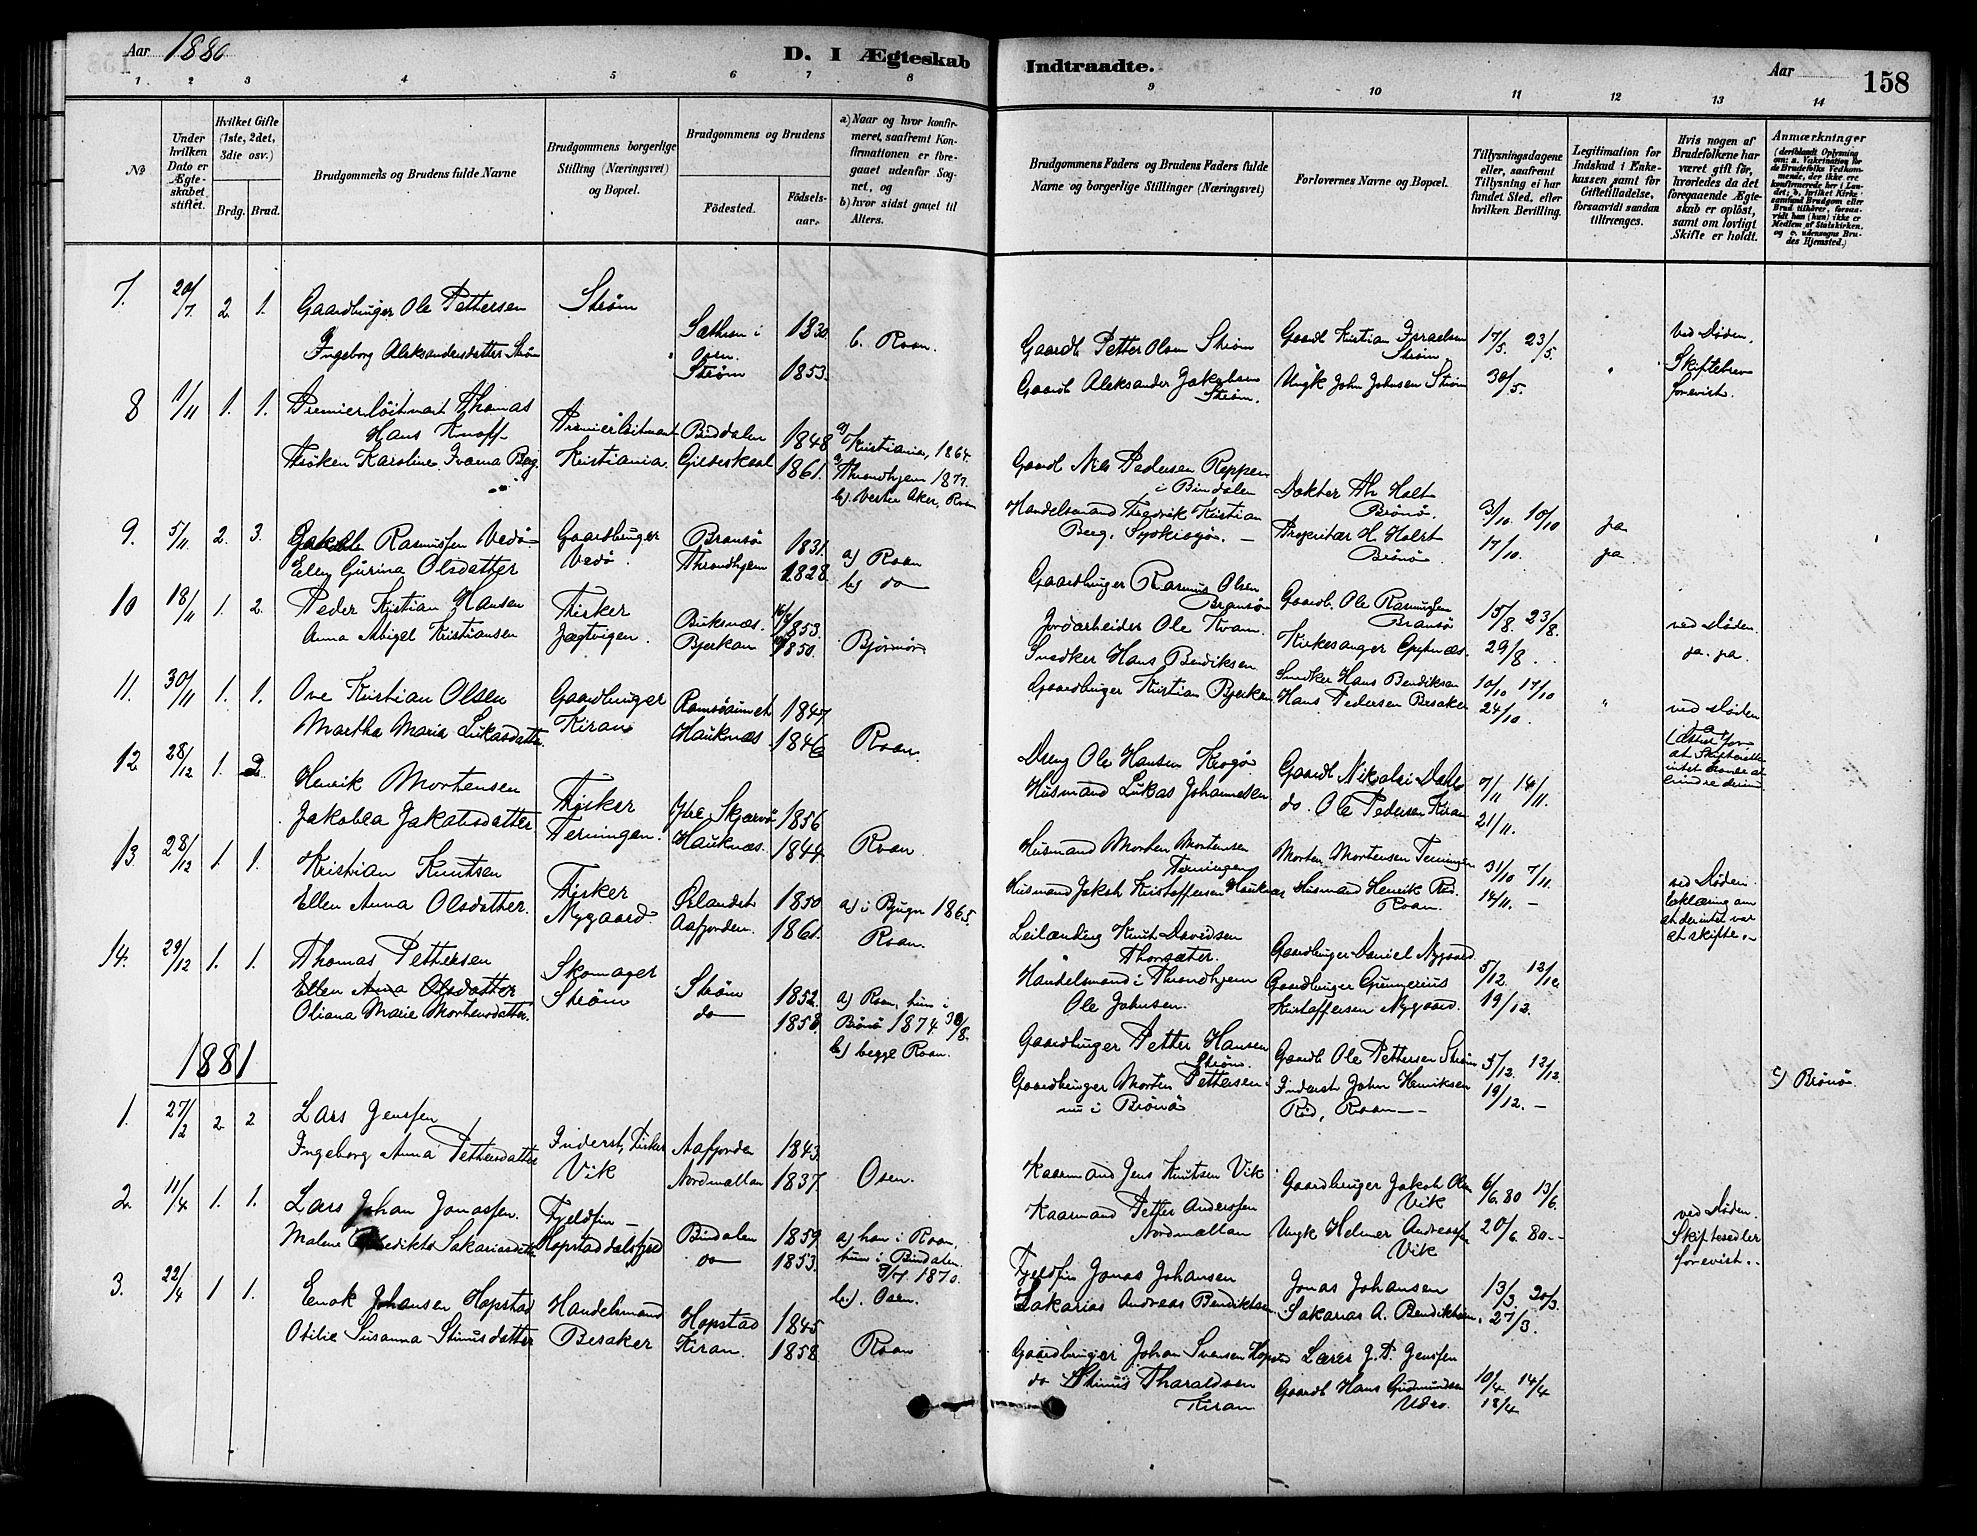 Aar 1880
D. I Ægteskab
Indtraadte.
Aar
158
1 2 3 4 5 6 7 8
9 10 11 12 13 14
No
Under hvilken Dato er Ægteskabet stiftet.
Hvilket Gifte (1ste, 2det, 3die osv.)
Brdg. Brud.
Brudgommens og Brudens fulde Navne
Brudgommens borgerlige Stilling (Næringsvei) og Bopæl.
Brudgommens og Brudens
Fødested.
Fødselsaar.
a) Naar og hvor konfirmeret, saafremt Konfirmationen er foregaaet udenfor Sognet, og
b) hvor sidst gaaet til Alters.
Brudgommens Faders og Brudens Faders fulde Navne og borgerlige Stillinger (Næringsvei)
Forlovernes Navne og Bopæl.
Tillysningsdagene eller, saafremt Tillysning ei har fundet Sted, efter hvilken Bevilling.
Legitimation for Indskud i Enkekassen samt for Giftetilladelse, forsaavidt saadan tiltrænges.
Hvis nogen af Brudefolkene har været gift før, hvorledes da det foregaaende Ægteskab er opløst, samt om lovligt Skifte er holdt.
Anmærkninger
7. 20/7 2. 1. Gaardbruger Ole Pettersen Strøm
Sæthren i Osen. 1830 b. Roan.
Ingeborg Aleksandersdatter Strøm
Strøm 1853.
Gaardb. Petter Olsen Strøm Gaardb Kristian Israelsen Strøm 17/5. 23/5.
Ved Døden. Skiftebrev forevist.
Gaardb Aleksander Jakobsen Strøm. Ungk John Johnsen Strøm 30/5.
8 11/11 1. 1. Premierløitnant Thomas Hans Knoff
Premierløitnant Bindalen 1848 a) Kristiania, 1864.
Frøken Karoline Ivarna Berg. Kristiania. Gildeskaal 1861. a) Throndhjem 1877.
b). Vestre Aker, Roan
Gaardb Nils Pedersen Reppen i Bindalen Dokter Th Holt Brønø. 3/10. 10/10 ja
Handelsmand Fredrik Kristian Berg. Proprietær H. Holst Brønø 17/10. ja
9. 5/11. 2. 3. Jakob Rasmussen Vedø Gaardbruger Bransø 1831. a) Roan
Ellen Gurina Olsdatter Vedø. Throndhjem 1828. b) do
Gaardbruger Rasmus Olsen Bransø Gaardb. Ole Rasmussen Bransø 15/8. 23/8. ved Døden.
Jordarbeider Ole Kvam. Kirkesanger 29/8. ja. ja.
10 18/11 1. 2. Peder Kristian Hansen Fisker Buksnæs. 1853.
Anna Abigel Kristiansen Jægtvigen. Bjerkan 1850. Bjørnør
Snedker Hans Bendiksen Snedker Hans Bendiksen 10/10 17/10
Gaardbruger Kristian Bjerkan Hans Pedersen Besaker 24/10. " ved Døden
11. 30/11 1. 1. Ove Kristian Olsen Gaardbruger 1847.
Martha Maria Lukasdatter. Kiran Hauknæs. 1846 Roan.
Dreng Ole Hansen Krogø Gaardb Nikolai Dahle 7/11 14/11.
Husmand Lukas Johannesen do. Ole Pedersen Kiran 21/11.
12 28/12 1. 2. Henrik Mortensen Fisker Skjærvø 1856
Jakobea Jakobsdatter Terningen. Hauknæs. 1844. Roan
Husmand Morten Mortensen Terningen Morten Mortensen Terningen 31/10 7/11. ved Døden.
Husmand Jakob Kristoffersen Hauknæs Husmand Henrik Rød. Roan. 14/11. - Erklæring om at der intet var at skifte.
13 28/12 1. 1. Kristian Knutsen Fisker Ørlandet 1850 a) i Bjugn 1865.
Ellen Anna Olsdatter. Nygaard Aafjorden. 1861. Roan.
Leilænding Knut Davidsen Thorsæter. Gaardbruger Daniel Nygaard 5/12. 12/12.
Handelsmand i Throndhjem Ole Johnsen. Gaardbruger Kristoffersen Nygaard. 19/12.
14. 29/12 1. 1. Thomas Pettersen Skomager Strøm 1852. a) Roan, hun i
Ellen Anna Olsdatter
Oliana Marie Mortensdatter. Strøm do 1858. Brønø 1874 30/8.
b) begge Roan.
Gaardbruger Petter Hansen Strøm. Gaardb Ole Pettersen Strøm 5/12. 12/12.
Gaardbruger Morten Pettersen nu i Brønø Inderst John Henriksen Rød, Roan 19/12. - c) Brønø.
1881
1. 27/2 2. 2 Lars Jenssen Inderst, Fisker Aafjorden 1843.
Ingeborg Anna Pettersdatter Vik Nordmøllan 1837. Osen.
Kaarmand Jens Knutsen Vik. Gaardbruger Jakob Olsen Vik 6/6. 80 13/6.
Kaarmand Petter Anderssen Nordmøllan Ungk Helmer Andreassen Vik 20/6 80 ved Døden. Skiftesedler forevist.
2. 11/4 1. 1. Lars Johan Jonassen. Fjeldfin Bindalen 1859. a) han i Roan,
Malene Benedikta Sakariasdatter Hopstaddalsfjeld do 1853. hun i Bindalen 3/7. 1870.
b). Osen.
Fjeldfin Jonas Johansen Jonas Johansen 13/3. 20/3.
Sakarias Andreas Bendiktsen Sakarias A. Bendiktsen. 27/3.
3. 22/4 1 1. Enok Johansen Hopstad Handelsmand Hopstad 1845.
Otilie Susanna Stinusdatter Besaker Kiran. 1858 Roan
Gaardbruger Johan Svensen Hopstad Lærer J. P. Jenssen 10/4. 14/4
do Stinus Tharaldsen Kiran Gaardb Hans Gudmundsen Udro. 18/4